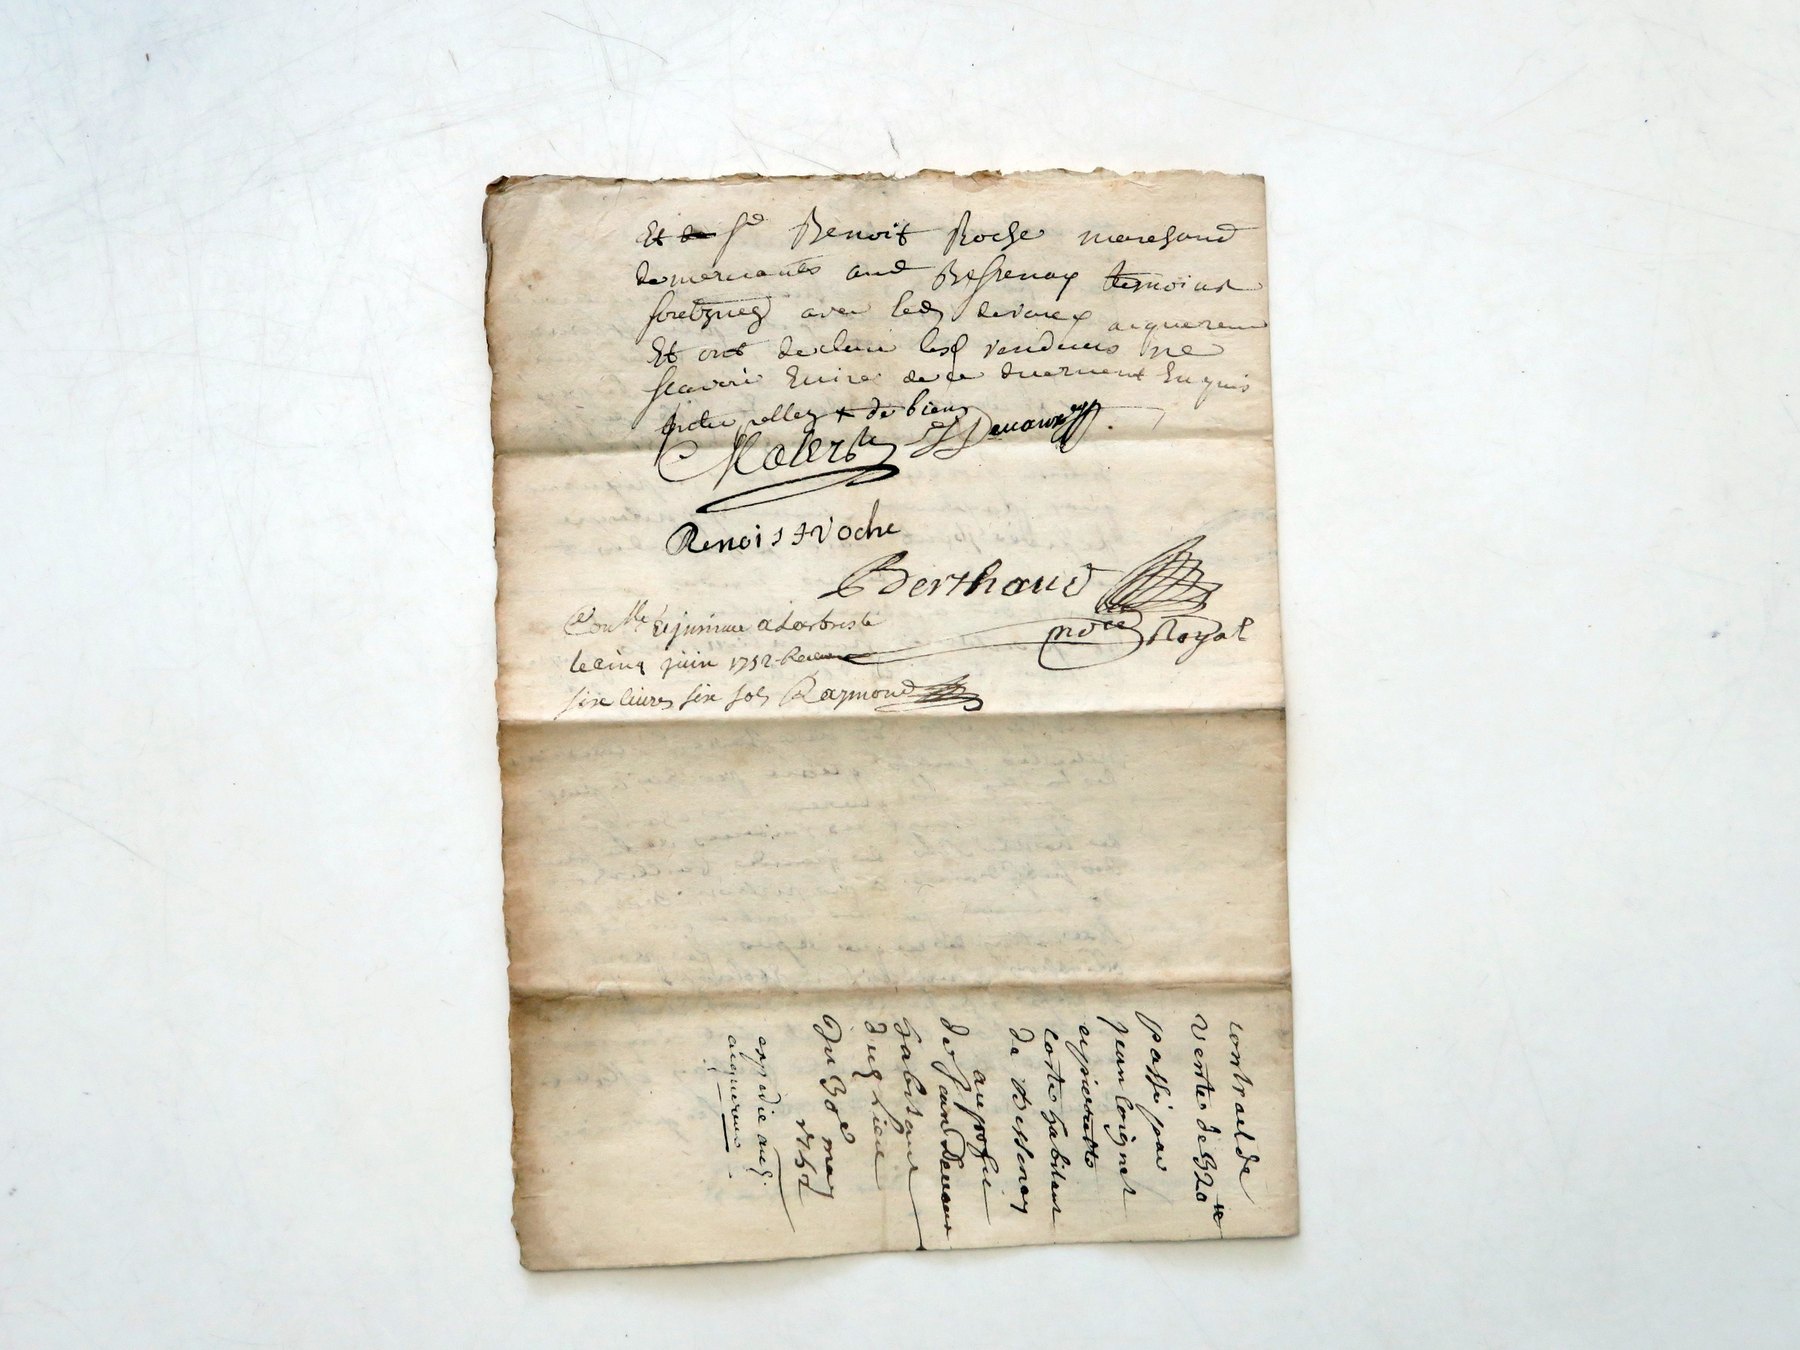 Et de Sr Benoit Roche marchand
de mercantes aud Bessenay temoins
avec led devaux acquereur
Et ont declaré lesd vendeurs ne
scavoir Ecrire de ce duement Enquis
de bien
Malerbe J Devaux
Benoist Roche
Berthaud
nore Royal
Conlle Et insinué a Larbresle
le cinq juin 1752 Receu
six livres six sols Raymond
contrat de
vente de 320 lt
passé par
jean Coignet
coste habitans
de Bessenay
au profit
de Jean Devaux
habitant
dud Lieu
Du 30e may
1752
expedié aud
acquereur